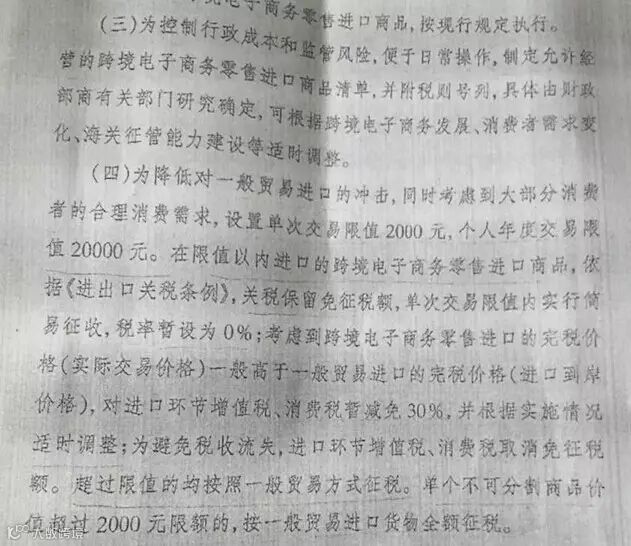 电子商务零售进口商品,按现行规定执行。
(三)为控制行政成本和监管风险,便于日常操作,制定允许经
营的跨境电子商务零售进口商品清单,并附税则号列,具体由财政
部商有关部门研究确定,可根据跨境电子商务发展、消费者需求变
化、海关征管能力建设等适时调整。
(四)为降低对一般贸易进口的冲击,同时考虑到大部分消费
者的合理消费需求,设置单次交易限值2000元,个人年度交易限
值20000元。在限值以内进口的跨境电子商务零售进口商品,依
据《进出口关税条例》,关税保留免征税额,单次交易限值内实行简
易征收,税率暂设为0%;考虑到跨境电子商务零售进口的完税价
格(实际交易价格)一般高于一般贸易进口的完税价格(进口到岸
价格),对进口环节增值税、消费税暂减免30%,并根据实施情况
适时调整;为避免税收流失,进口环节增值税、消费税取消免征税
额。超过限值的均按照一般贸易方式征税。单个不可分割商品价
值超过2000元限额的,按一般贸易进口货物全额征税。